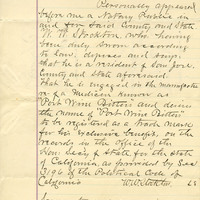 Personally appeared
before me a Notary Public in
and for said County and State
W. W. Stockton, who having
been duly sworn according
to law, deposes and says:
that he is a resident of San Jose
County and State aforesaid.
That he is engaged in the manufacture
of a Medicine known as
Port Wine Bitters and desires
the name of Port Wine Bitters
to be registered as a trade mark
for his exclusive benefit, on
the records in the office of the
Hon. Secy. of State for the state
of California, as provided by Sec
3196 of the Political Code of
California
W. W. Stockton